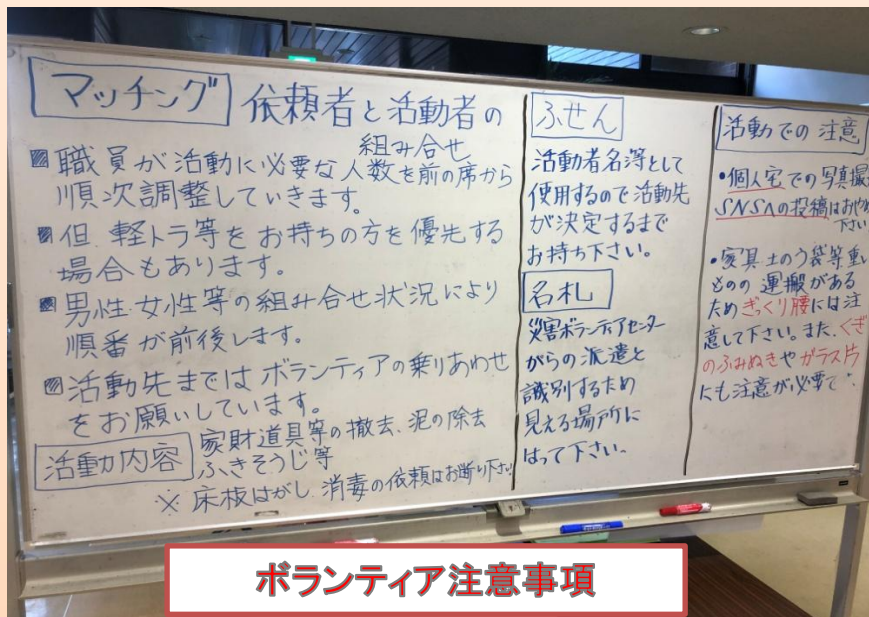 マッチング 依頼者と活動者の
組み合せ
職員が活動に必要な人数を前の席から
順次調整していきます。
但、軽トラ等をお持ちの方を優先する
場合もあります。
男性、女性等の組み合せ状況により
順番が前後します。
活動先まではボランティアの乗りあわせ
をお願いしています。
活動内容 家財道具等の撤去、泥の除去
ふきそうじ等
※ 床板はがし、消毒の依頼はお断り下さい
ふせん
活動者名等として
使用するので活動先
が決定するまで
お持ち下さい。
名札
災害ボランティアセンター
からの派遣と
識別するため
見える場所に
はって下さい。
活動での注意
•個人宅での写真撮
SNSへの投稿はおやめ
下さい
•家具、土のう袋等重い
ものの運搬がある
ためぎっくり腰には注
意して下さい。また、くぎ
のふみぬきやガラス片
にも注意が必要で
ボランティア注意事項